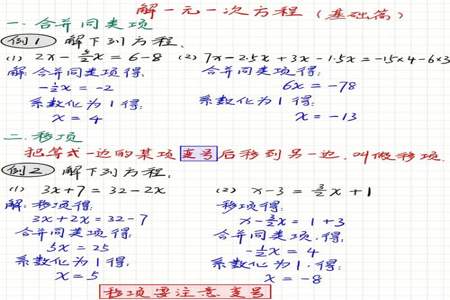 解一元一次方程（基础篇）
一.合并同类项
例1 解下列方程.
(1) 2x-5/2x=6-8 (2) 7x-2.5x+3x-1.5x=-15×4-6×3
解:合并同类项得: 合并同类项得:
-1/2x=-2 6x=-78
系数化为1得: 系数化为1得:
x=4 x=-13
二.移项
把等式一边的某项变号后移到另一边.叫做移项.
例2 解下列方程.
(1) 3x+7=32-2x (2) x-3=3/2x+1
解:移项得: 移项得:
3x+2x=32-7 x-3/2x=1+3
合并同类项得: 合并同类项.得:
5x=25 -1/2x=4
系数化为1得: 系数化为1.得:
x=5 x=-8
移项要注意变号